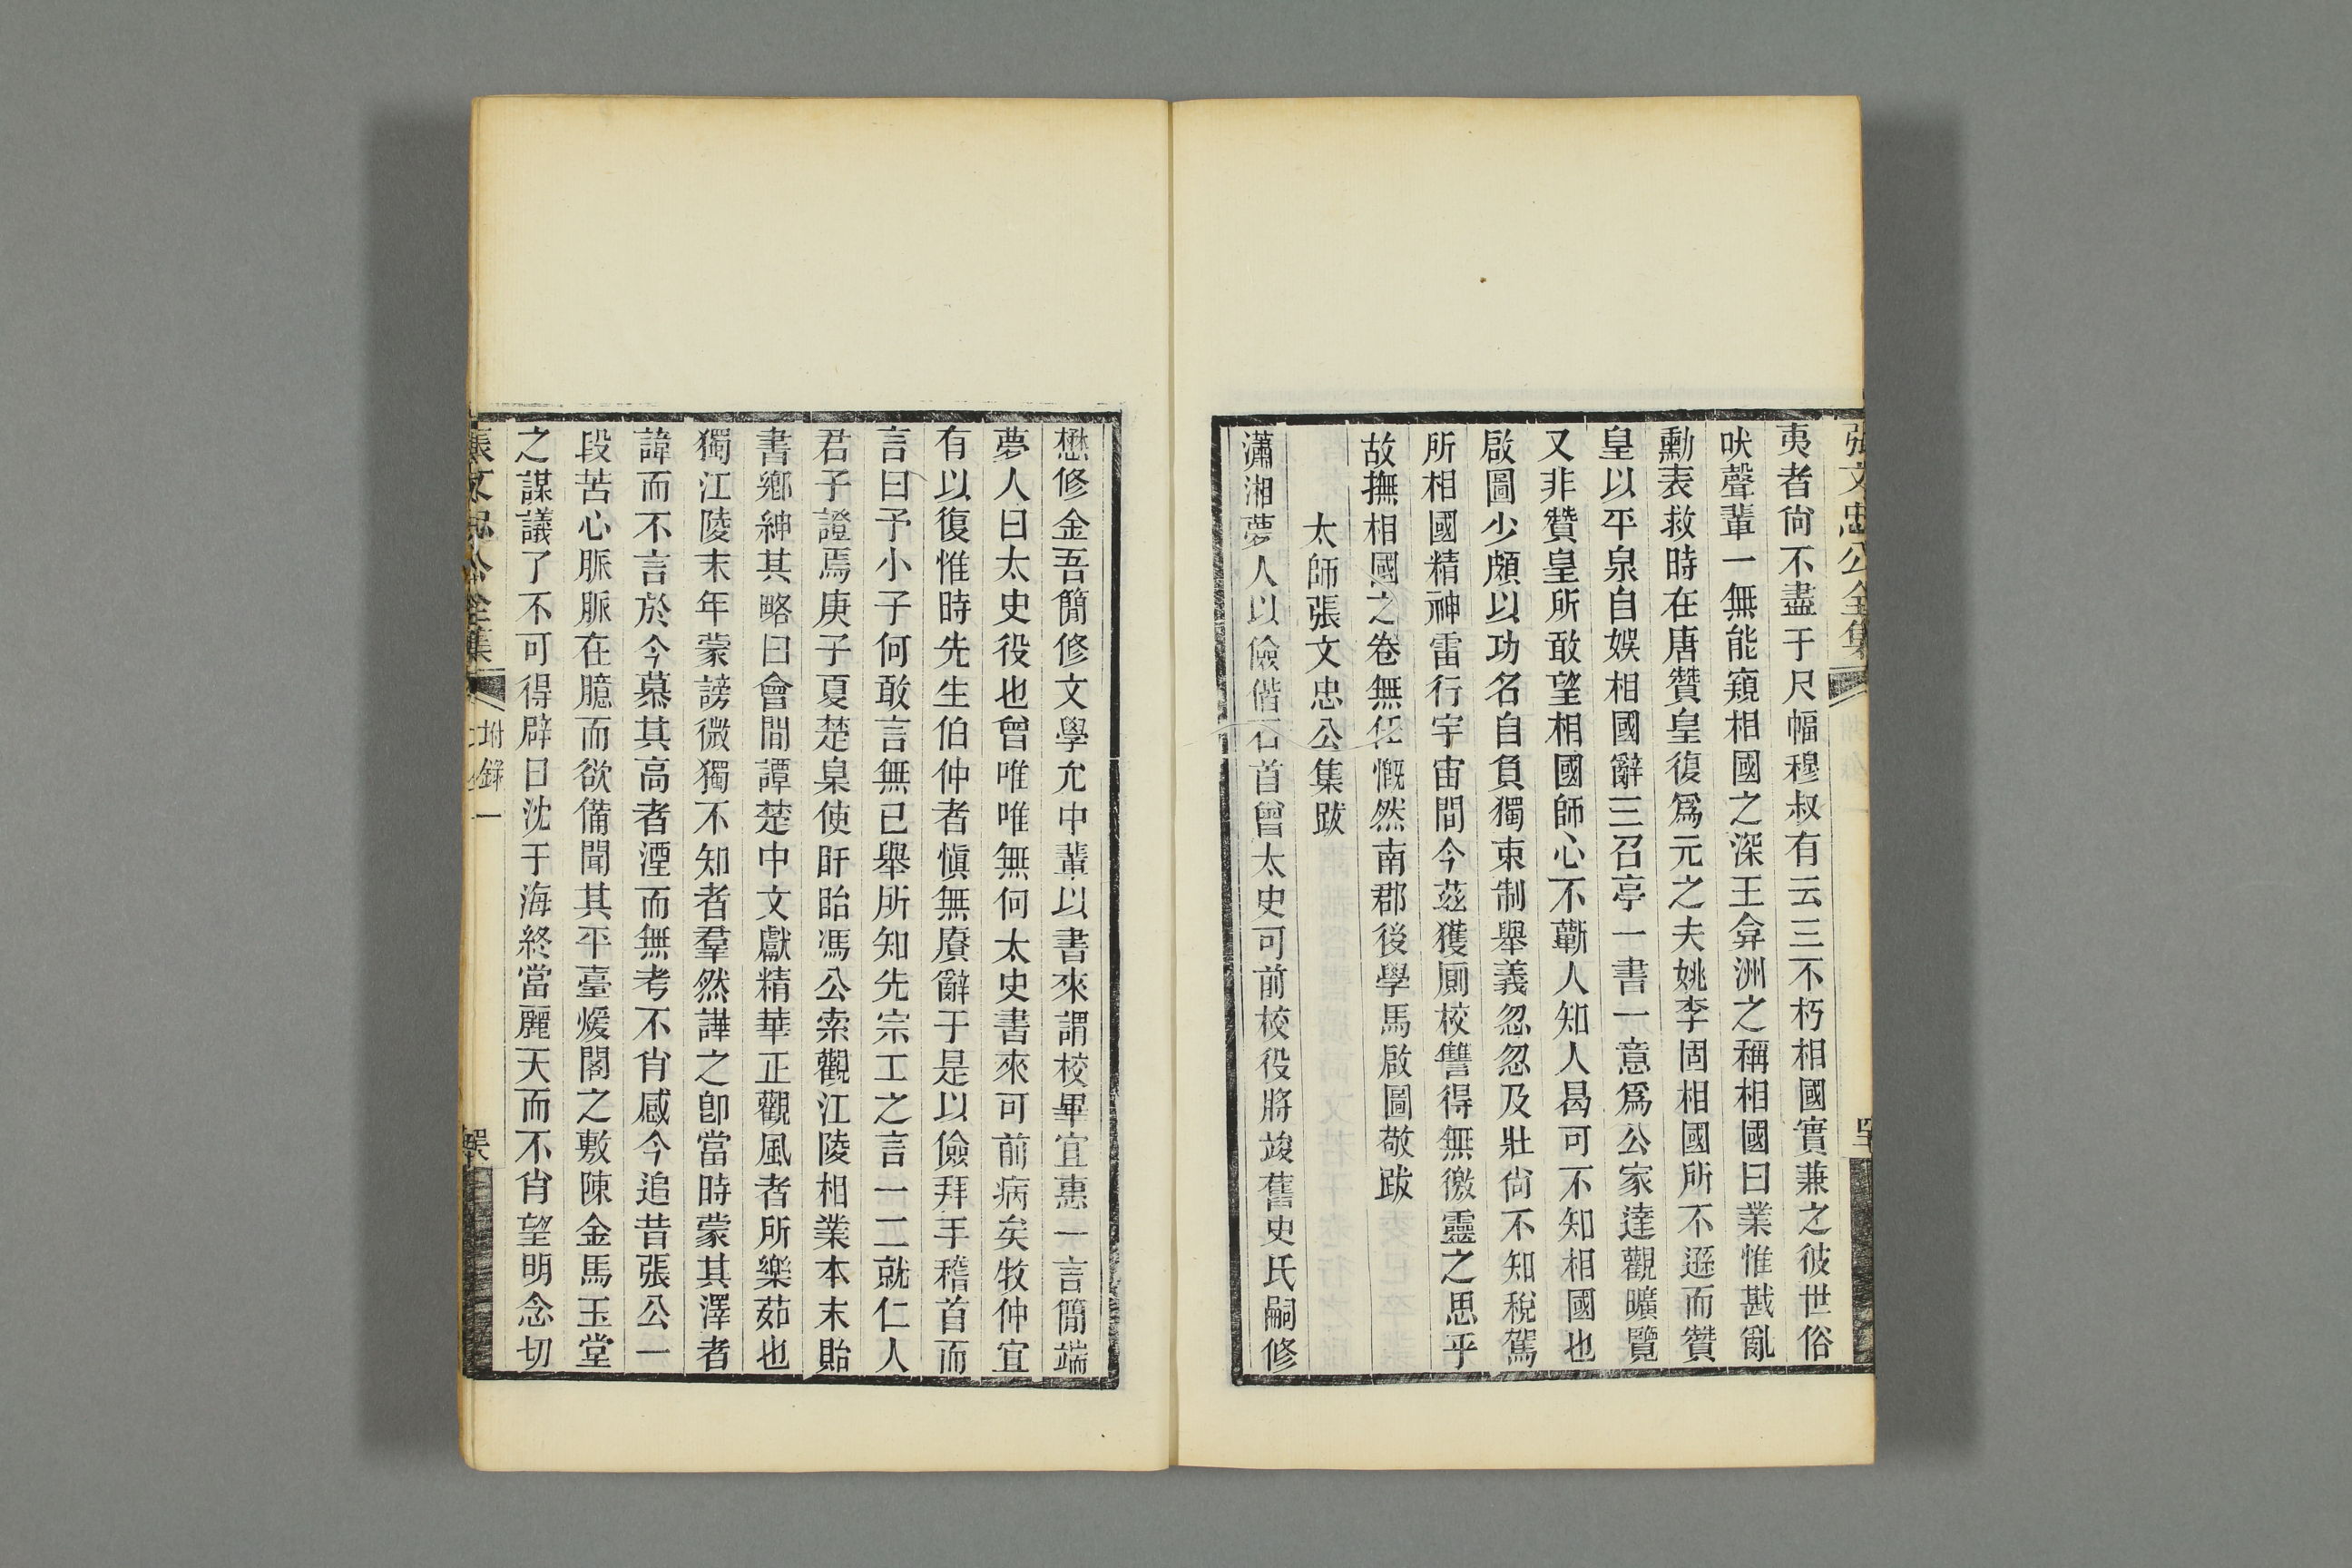 張文忠公全集
夷者尙不盡于尺幅穆叔有云三不朽相國實兼之彼世俗
吠聲輩一無能窺相國之深王弇洲之稱相國曰業惟戡亂
勳表救時在唐贊皇復爲元之夫姚李固相國所不遜而贊
皇以平泉自娛相國辭三召亭一書一意爲公家達觀曠覽
又非贊皇所敢望相國師心不蘄人知人曷可不知相國也
啟圖少頗以功名自負獨束制舉義忽忽及壯尙不知稅駕
所相國精神雷行宇宙間今茲獲厠校讐得無徼靈之思乎
故撫相國之卷無任慨然南郡後學馬啟圖敬跋
太師張文忠公集跋
瀟湘夢人以儉偕石首曾太史可前校役將竣舊史氏嗣修
懋修金吾簡修文學允中輩以書來謂校畢宜惠一言簡端
夢人曰太史役也曾唯唯無何太史書來可前病矣牧仲宜
有以復惟時先生伯仲者愼無賡辭于是以儉拜手稽首而
言曰予小子何敢言無已舉所知先宗工之言一二就仁人
君子證焉庚子夏楚臬使盱眙馮公索觀江陵相業本末貽
書鄉紳其略曰會間譚楚中文獻精華正觀風者所樂茹也
獨江陵末年蒙謗微獨不知者羣然譁之卽當時蒙其澤者
諱而不言於今慕其高者湮而無考不肖感今追昔張公一
段苦心脈脈在臆而欲備聞其平臺煖閣之敷陳金馬玉堂
之謀議了不可得辟日沈于海終當麗天而不肖望明念切
張文忠公全集
附錄一